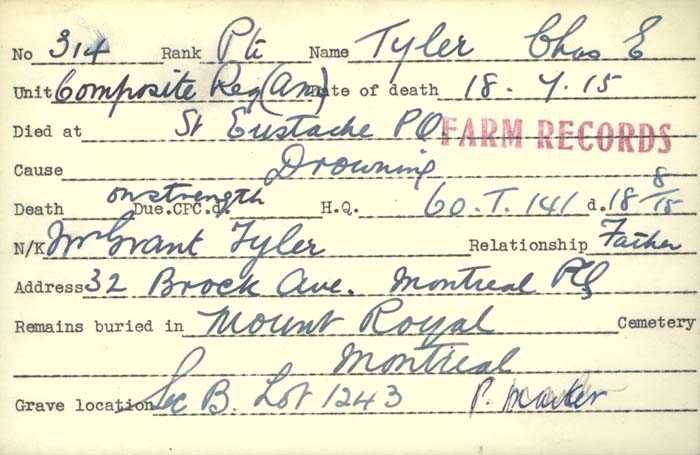 No 314 Rank Pte Name Tyler Chas E
Unit Composite Reg (Am) Date of death 18.7.15
Died at St Eustache PQ. FARM RECORDS
Cause Drowning
Death on strength Due.CPC.d. H.Q. 60.T.141 d. 18 8/15
N/K Mr Grant Tyler Relationship Father
Address 32 Brock Ave. Montreal PQ
Remains buried in Mount Royal Cemetery
Montreal
Grave location Sec B. Lot 1243 P. Marker